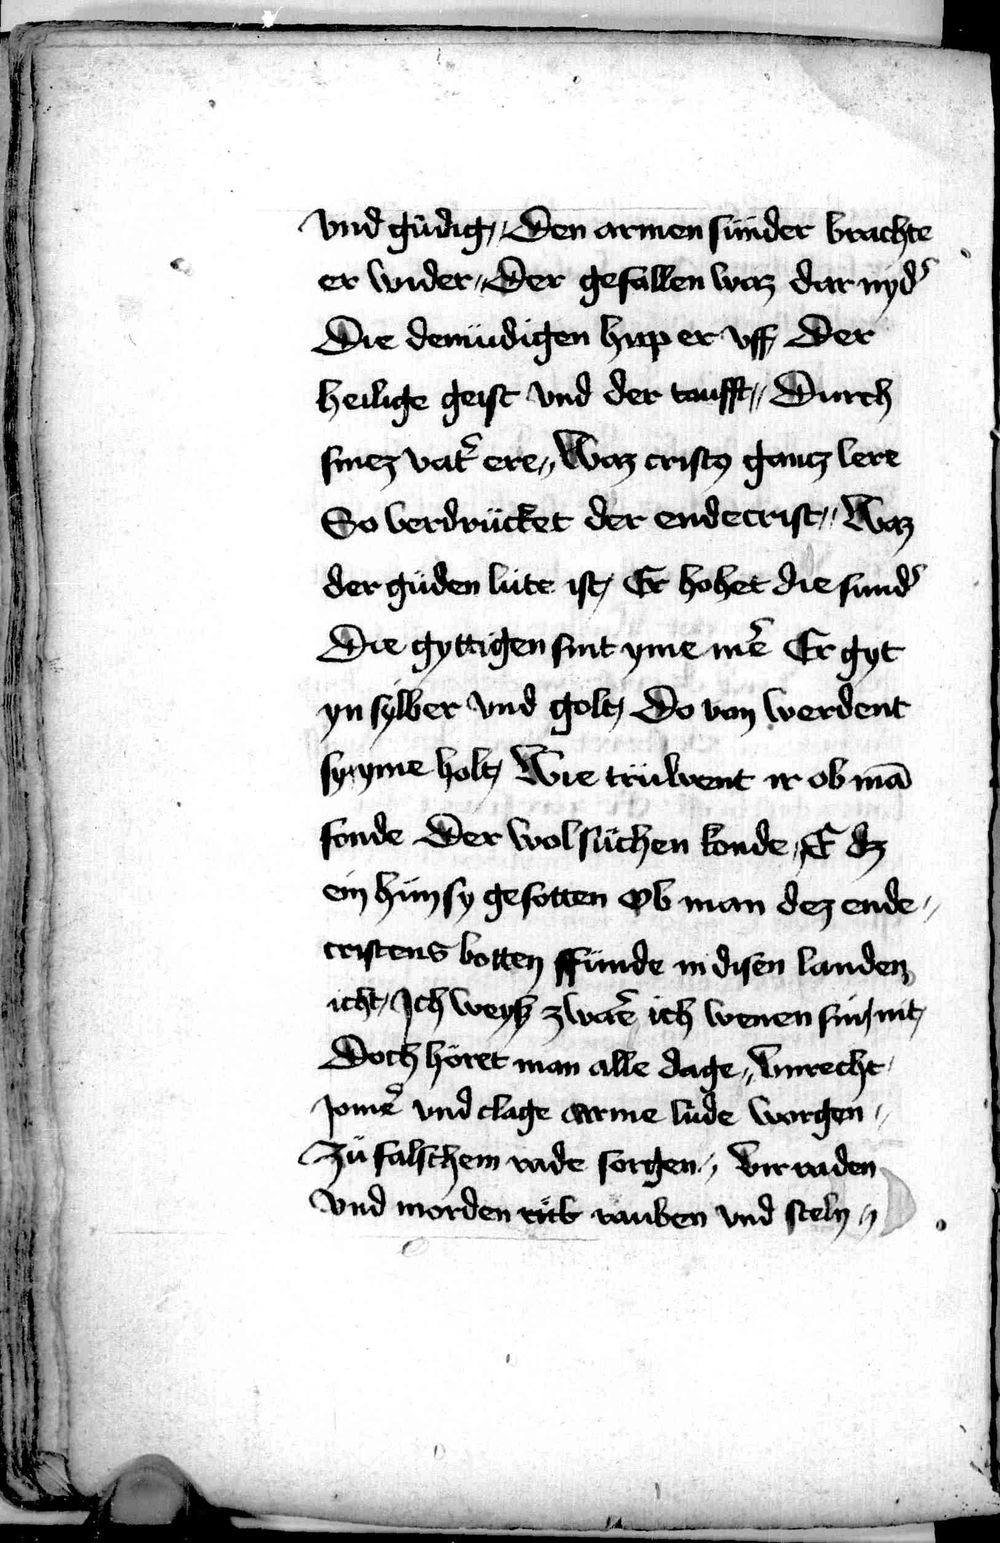 vnd gůdig // Den armen sünder brachte
er wider // Der gefallen waz dar nyd᷒
Die demüdigen hup er vff Der
heilige geist vnd der taufft // Durch
sinez vat᷒ ere // Waz cristꝯ gantz lere
So verdrücket der endecrist // Waz
der güden lüte ist / Er hohet die sund᷒
Die gyttigen sint yme me᷒ Er gyt
yn sylber vnd golt / Do von werdent
sy yme holt / Wie trüwent ir ob mā
fonde Der wol süchen konde // E dz
ein hůn sy gesotten Ob man dez ende //
cristens botten ffünde in disen landen
icht / Ich weyß zware᷒ ich wenen sin nit /
Doch höret man alle dage // vnrecht
Jome᷒ vnd clage arme lüde worgen //
Zů falschem rade sorgen // verraden
Vnd morden rüb rauben vnd steln //